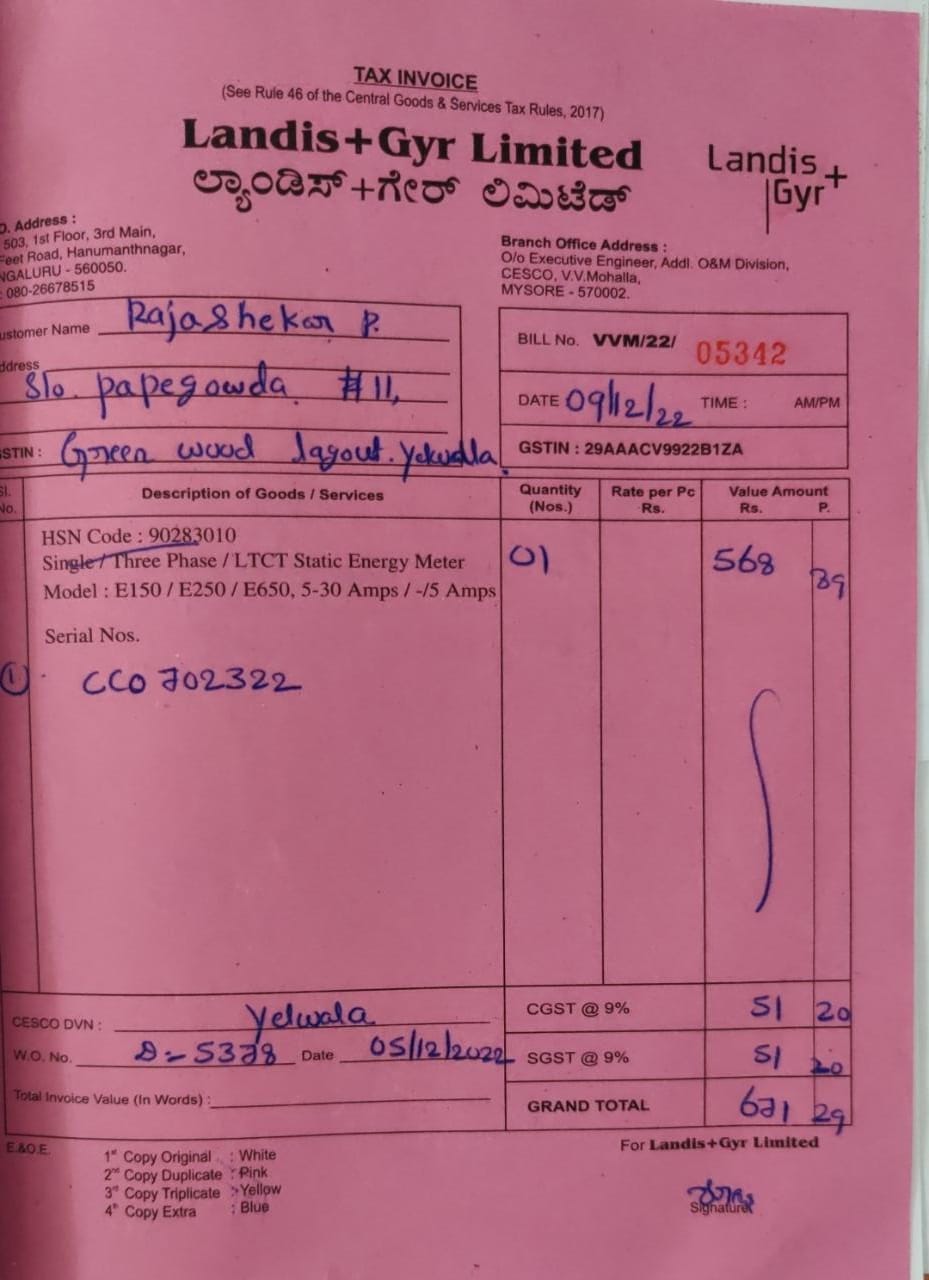 TAX INVOICE
(See Rule 46 of the Central Goods & Services Tax Rules, 2017)
Landis+Gyr Limited
ಲ್ಯಾಂಡಿಸ್+ಗೇರ್ ಲಿಮಿಟೆಡ್
Landis+
Gyr
O. Address :
503, 1st Floor, 3rd Main,
Feet Road, Hanumanthnagar,
NGALURU - 560050.
: 080-26678515
Branch Office Address :
O/o Executive Engineer, Addl. O&M Division,
CESCO, V.V.Mohalla,
MYSORE - 570002.
ustomer Name Rajashekar P.
ddress
S/o. papegowda. #11,
STIN : Green wood lagout. Yelwalla.
BILL No. VVM/22/ 05342
DATE 09/12/22 TIME : AM/PM
GSTIN : 29AAACV9922B1ZA
Sl. No. Description of Goods / Services Quantity (Nos.) Rate per Pc Rs. Value Amount Rs. P.
HSN Code : 90283010
Single / Three Phase / LTCT Static Energy Meter 01 568 89
Model : E150 / E250 / E650, 5-30 Amps / -/5 Amps
Serial Nos.
1 CC0702322
CESCO DVN : Yelwala
W.O. No. D-5378 Date 05/12/2022
Total Invoice Value (In Words) :
CGST @ 9% 51 20
SGST @ 9% 51 20
GRAND TOTAL 671 29
E.&O.E.
1st Copy Original : White
2nd Copy Duplicate : Pink
3rd Copy Triplicate : Yellow
4th Copy Extra : Blue
For Landis+Gyr Limited
Signature